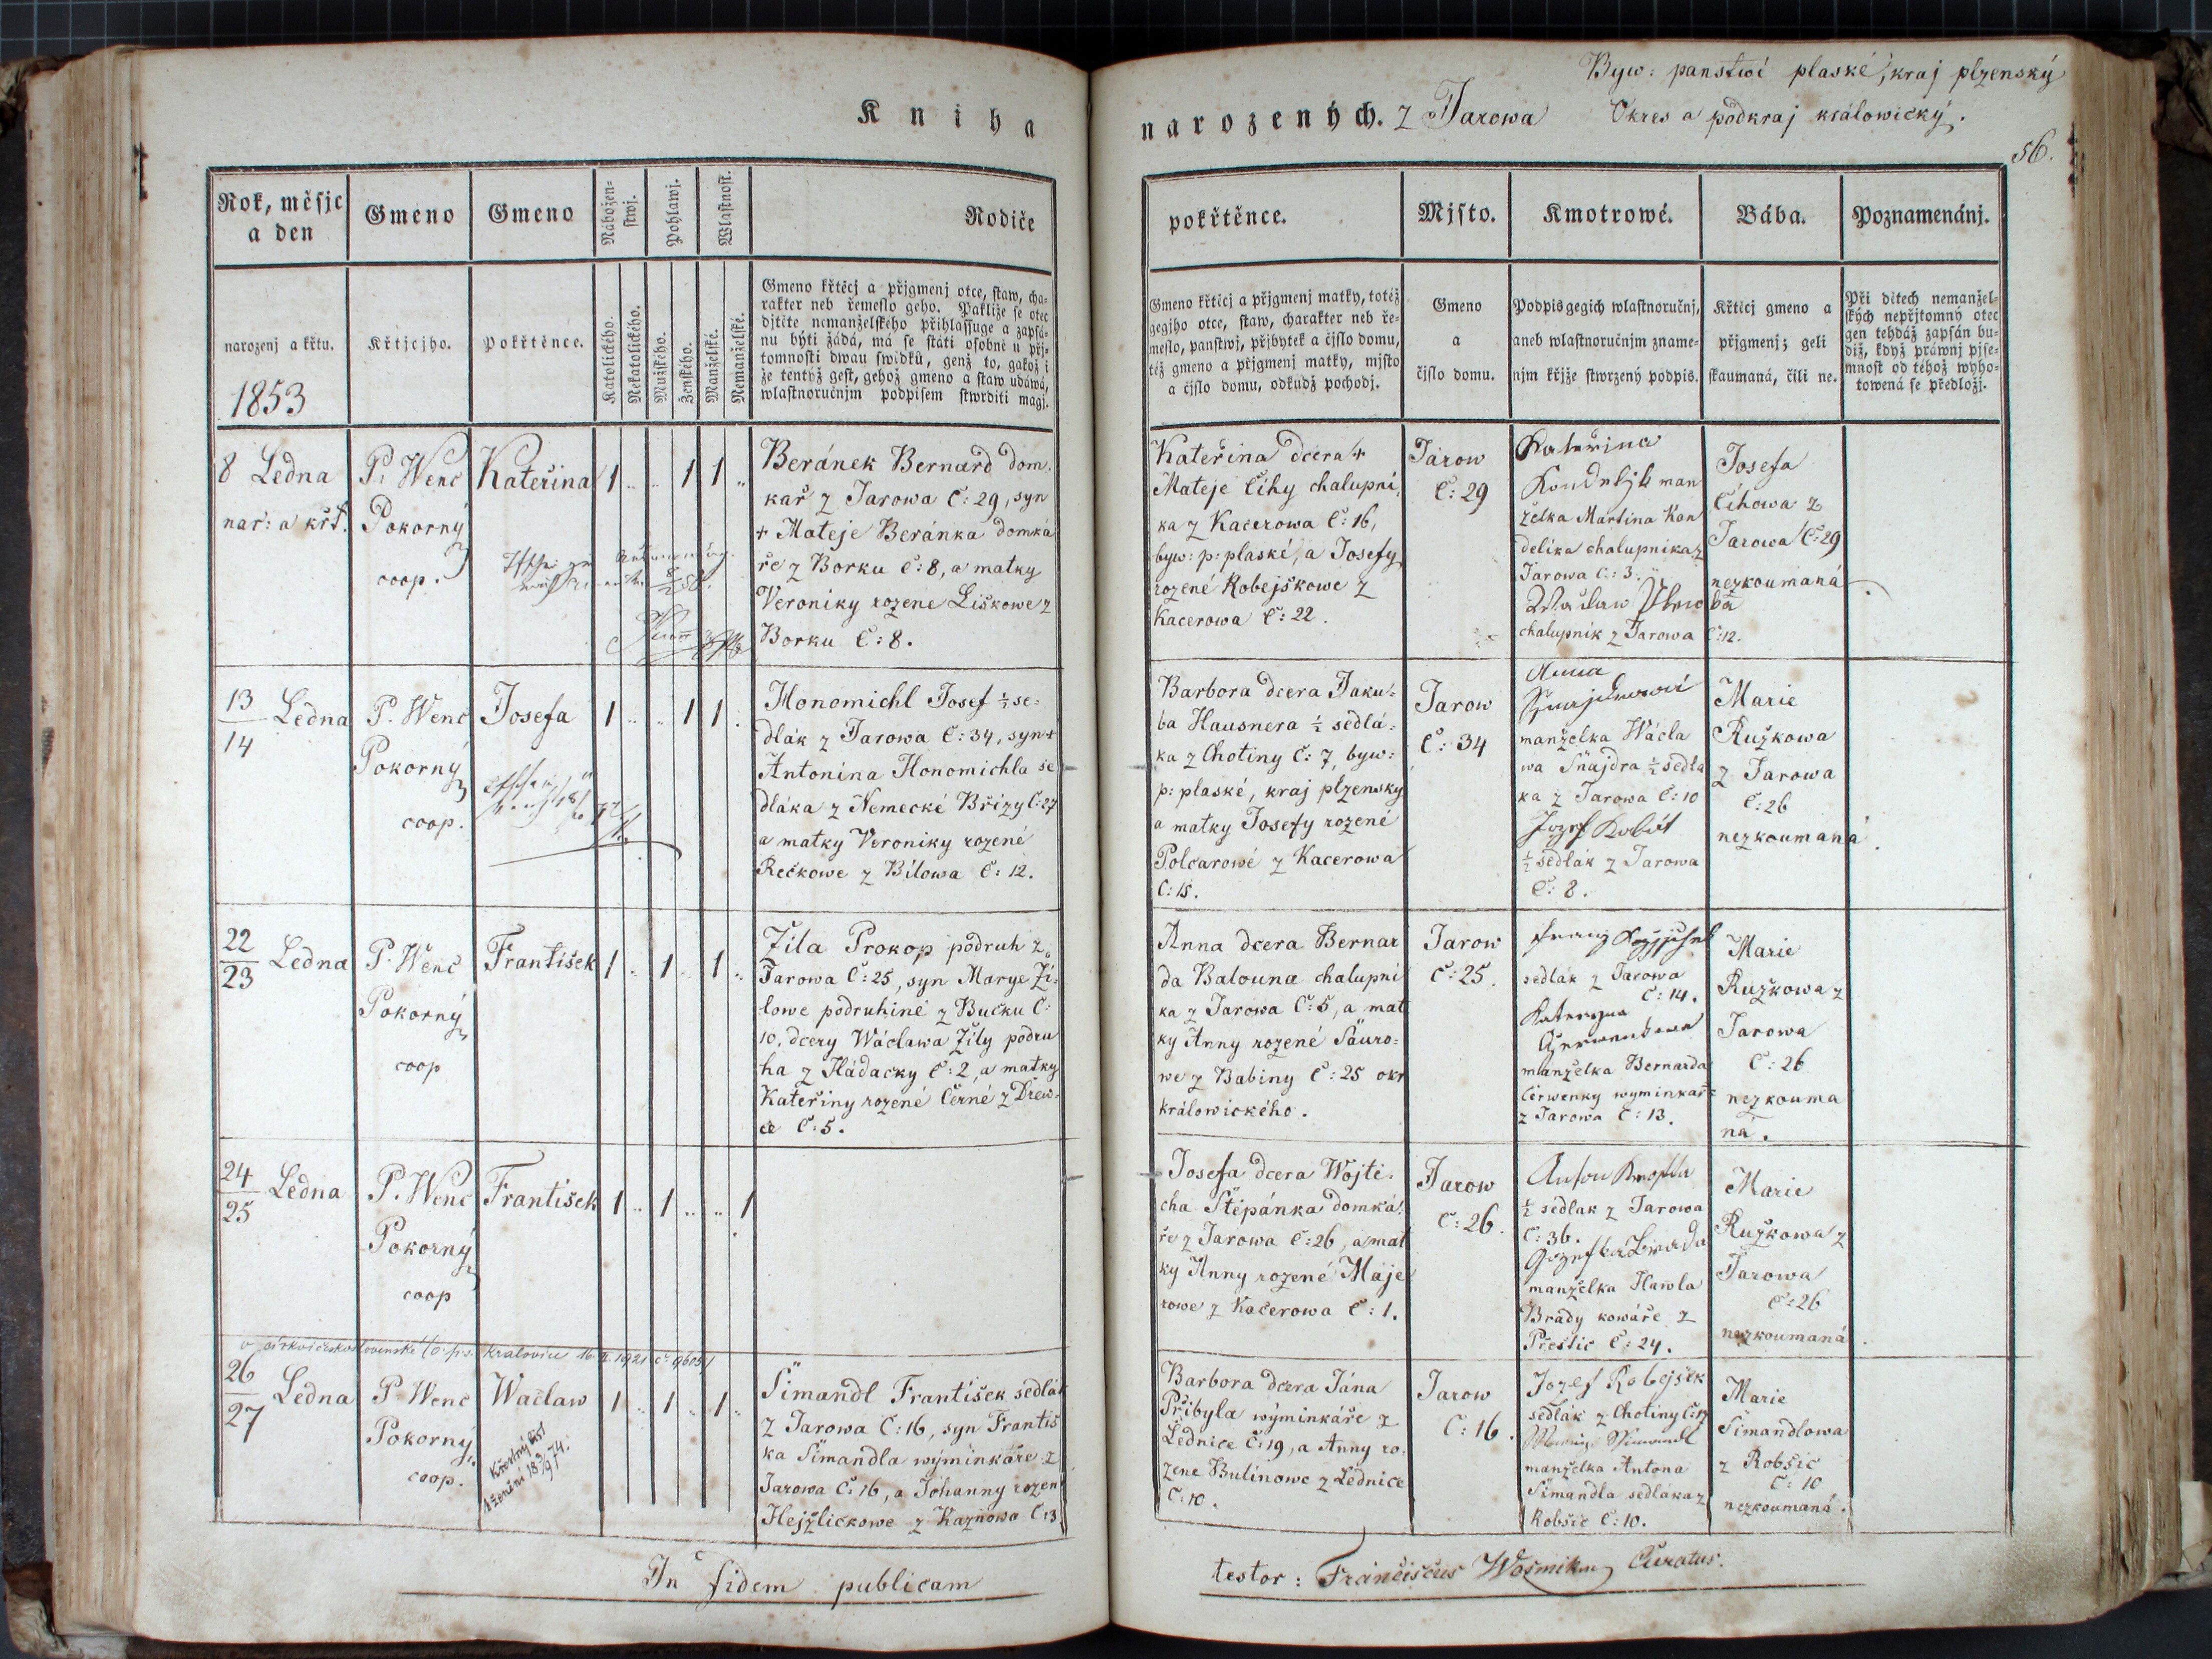 Byw: panstwí plaské, kraj plzenský
Kniha narozených. z Jarowa
Okres a podkraj králowický.
56.
Rok, měsjc a den
narozenj a křtu.
1853
Gmeno
Křtjcjho.
Gmeno
Pokřtěnce.
Nábožen-
stwj.
Katolického.
Nekatolického.
Pohlawj.
Mužského.
Ženského.
Wlastnost.
Manželské.
Nemanželské.
Rodiče
Gmeno křtěcj a přjgmenj otce, staw, cha-
rakter neb řemeslo geho. Pakliže se otec
djtěte nemanželského přihlassuge a zapsá-
nu býti žádá, má se státi osobně u přj-
tomnosti dwau swědků, genž to, gakož i
že tentýž gest, gehož gmeno a staw udáwá,
wlastnoručnjm podpisem stwrditi magj.
pokřtěnce.
Gmeno křtěcj a přjgmenj matky, totéž
gegjho otce, staw, charakter neb ře-
meslo, panstwj, přjbytek a čjslo domu,
též gmeno a přjgmenj matky, mjsto
a čjslo domu, odkudž pochodj.
Mjsto.
Gmeno
a
čjslo domu.
Kmotrowé.
Podpis gegich wlastnoručnj,
aneb wlastnoručnjm zname-
njm křjže stwrzený podpis.
Bába.
Křtěcj gmeno a
přjgmenj; geli
skaumaná, čili ne.
Poznamenánj.
Při dětech nemanžel-
ských nepřjtomný otec
gen tehdáž zapsán bu-
diž, když práwnj pjse-
mnost od téhož wyho-
towená se předložj.
8 Ledna
nar: a křt.
P. Wenc
Pokorný
coop.
Kateřina
1 1 1
Beránek Bernard dom.
kař z Jarowa Č: 29, syn
+ Mateje Beránka domká
ře z Borku č: 8, a matky
Veroniky rozene Liškowe z
Borku Č: 8.
Kateřina dcera +
Mateje Číhy chalupní
ka z Kacerowa č: 16,
byw: p: plaské, a Josefy
rozené Robejškowe z
Kacerowa č: 22.
Jarow
č: 29
Kateřina
man
želka Martina Kon
delíka chalupnika z
Jarowa č: 3.
chalupník z Jarowa č: 12.
Josefa
Číhowa z
Jarowa č: 29
nezkoumaná
13
14
Ledna
P. Wenc
Pokorný
coop.
Josefa
1 1 1
Honomichl Josef ½ se:
dlák z Jarowa Č: 34, syn +
Antonína Honomichla se
dláka z Nemecké Břízy č: 27
a matky Veroniky rozené
Rečkowe z Bílowa č: 12.
Barbora dcera Jaku:
ba Hausnera ½ sedlá:
ka z Chotiny č: 7, byw:
p: plaské, kraj plzensky
a matky Josefy rozené
Polcarowé z Kacerowa
č: 15.
Jarow
č: 34
Anna
manželka Wácla
wa Šnajdra ½ sedla
ka z Jarowa č: 10
Jozef
½ sedlák z Jarowa
č: 8.
Marie
Ružkowa
z Jarowa
č: 26
nezkoumaná.
22
23
Ledna
P. Wenc
Pokorný
coop
František
1 1 1
Žila Prokop podruh z
Jarowa č: 25, syn Marye Ži:
lowe podruhině z Bučku č:
10, dcery Wáclawa Žily podru
ha z Hádacky č: 2, a matky
Kateřiny rozené Černé z Drew-
ce č: 5.
Anna dcera Bernar
da Balouna chalupni
ka z Jarowa č: 5, a mat
ky Anny rozené Sauro:
we z Babiny č: 25 okr
králowického.
Jarow
č: 25.
Franz
sedlák z Jarowa
č: 14.
manželka Bernarda
Červenky wyminkaře
z Jarowa č: 13.
Marie
Ružkowa z
Jarowa
č: 26
nezkouma
ná.
24
25
Ledna
P. Wenc
Pokorný
coop
František
1 1 1
Josefa dcera Wojtě.
cha Štěpánka domká
ře z Jarowa č: 26, a mat
ky Anny rozené Maje
rowe z Kačerowa č: 1.
Jarow
č: 26.
Anton
½ sedlak z Jarowa
č: 36.
manželka Hawla
Brady kowáře z
Přestic č: 24.
Marie
Ružkowa z
Jarowa
č: 26
nezkoumaná.
26
27
Ledna
P. Wenc
Pokorný
coop.
Waclaw
Křestný list
k ženění 18 3/9 74.
1 1 1
Šimandl František sedlák
z Jarowa č: 16, syn Františ
ka Šimandla wýminkáře z
Jarowa č: 16, a Johanny rozen
Hejžlickowe z Kaznowa č: 13
Barbora dcera Jána
Přibyla wýminkáře z
Lednice č: 19, a Anny ro:
zene Bulinowe z Lednice
č: 10.
Jarow
č: 16.
Jozef Robejšek
sedlák z Chotiny č: 17
manželka Antona
Šimandla sedláka z
Robšic č: 10.
Marie
Šimandlowa
z Robšic
č: 10
nezkoumaná.
In fidem publicam
testor: Franciscus Wosmik Curatus.